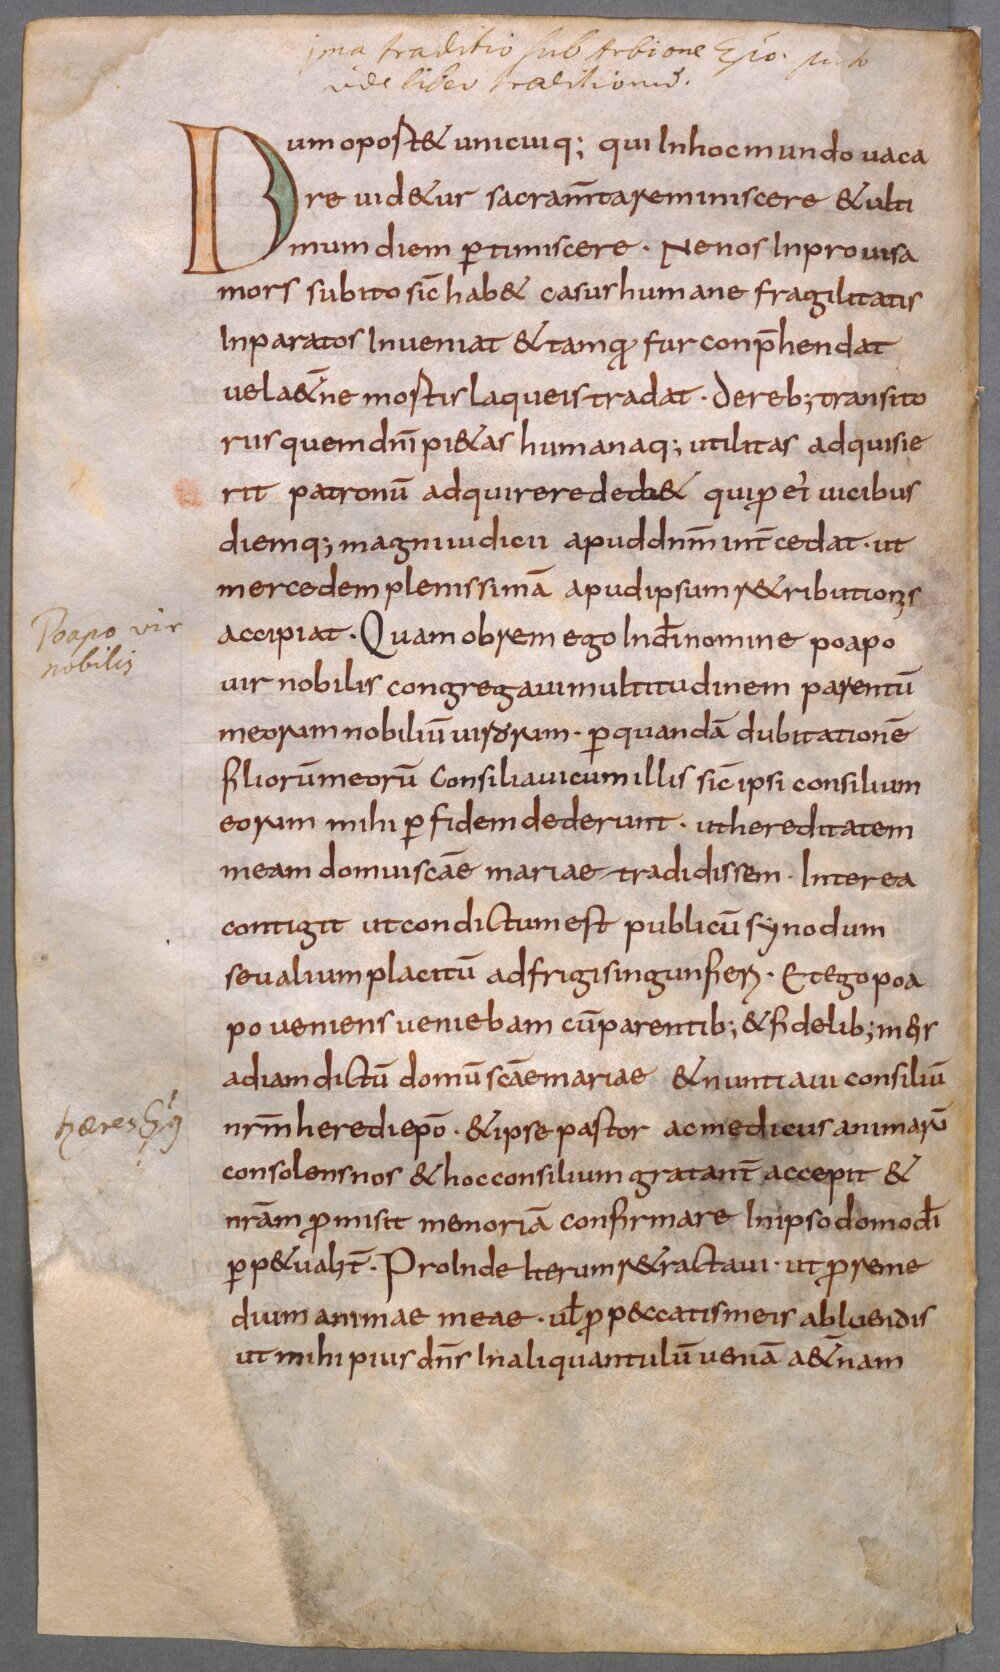 ima traditio sub Arbione Epō.
vide liber traditionū.
Dum oport& unicuiq; qui Inhoc mundo uaca
re uid&ur sacram̄ta reminiscere & ulti
mum diem ꝑtimiscere . Ne nos Inprouisa
mors subito sic̄ hab& casus humane fragilitatis
Inparatos Inueniat & tamquā fur conp̄hendat
uel a&̄ne mortis laqueis tradat . De reb; transito
rus quem dn̄i pi&as humanaq; utilitas adquisie
rit patronū adquirere deb& qui ꝓ ei uicibus
diemq; magni iudicii apud dn̄m int̄cedat . ut
mercedem plenissimā apud ipsum r&ributionis
accipiat . Quam obrem ego In dī nomine poapo
uir nobilis congregaui multitudinem parentū
meorum nobiliū uirorum . ꝑ quandā dubitationē
filiorū meorū Consiliaui cum illis sic̄ ipsi consilium
eorum mihi ꝑ fidem dederunt . ut hereditatem
meam domui scāe mariae tradidissem . Interea
contigit ut condictum est publicū synodum
seu alium placitū ad frigisingun fierī . Et ego poa
po ueniens ueniebam cū parentib; & fidelib; meis
ad iam dictū domū scāe mariae & nuntiaui consiliū
nr̄m heredi ep̄o . & ipse pastor ac medicus animarū
consolens nos & hoc consilium gratant̄ accepit &
nr̄am ꝓmisit memoriā confirmare In ipso domo dī
ꝑp&ualit̄ . ProInde Iterum r&ractaui . ut ꝓ reme
dium animae meae . ul̄ ꝓ peccatis meis abluendis
ut mihi pius dn̄s In aliquantulū ueniā a&̄nam
Poapo vir
nobilis
hæres Ep̄